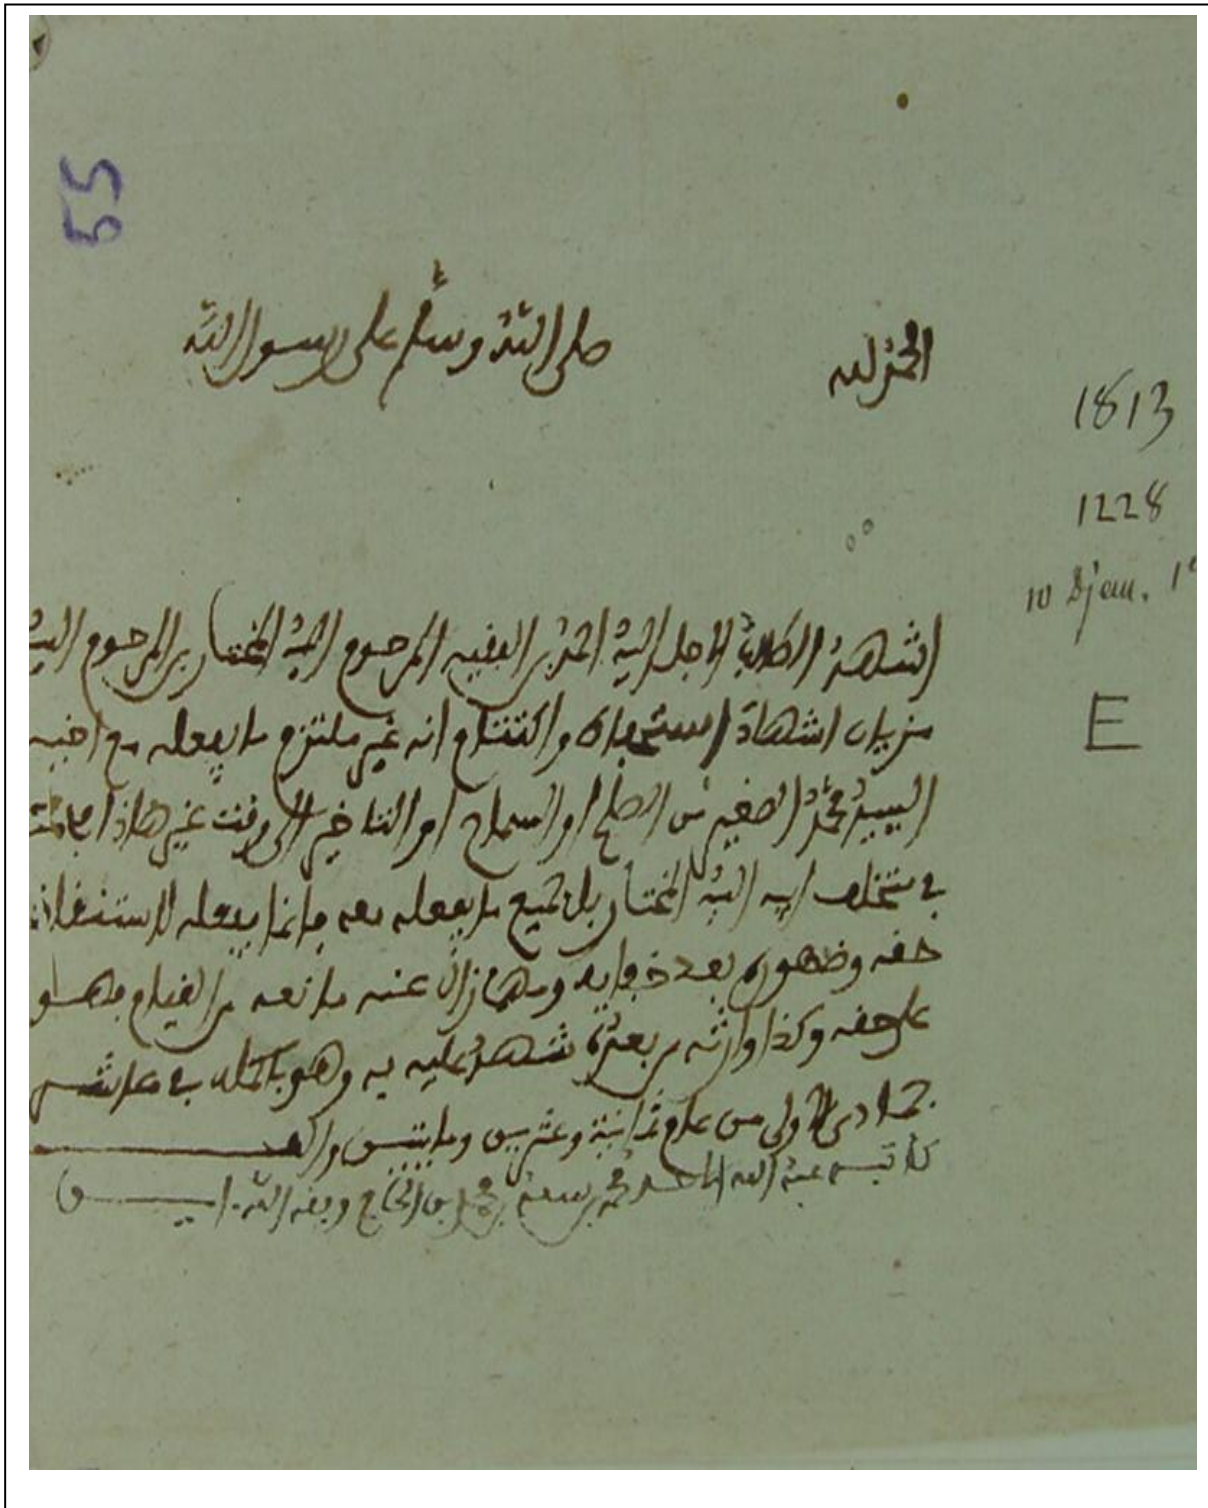 55
الحمد لله صلى الله وسلم على رسول الله
1813
1228
10 Djou. 1
E
اشهد الطالب الاجل السيد احمد بن الفقيه المرحوم السيد المختار بن المرحوم السيد
مزيان اشهاد استحفاظ واكتتام انه غير ملتزم ما يفعله مع اخيه
السيد محمد الصغير من الصلح او السماح او التاخير الى وقت غير هاذا
في متخلف ابيه السيد المختار بل جميع ما يفعله معه فانما يفعله لاستنقاذ
حقه وظهوره بعد خفايه ومهما زال عنه مانعه من القيام فهو
على حقه وكذا وارثه من بعده شهد عليه به وهو باكمله في عاشر
جمادى الاولى من عام ثمانية وعشرين ومايتين والف
كاتبه عبد الله محمد بن محمد بن الحاج وفقه الله امين